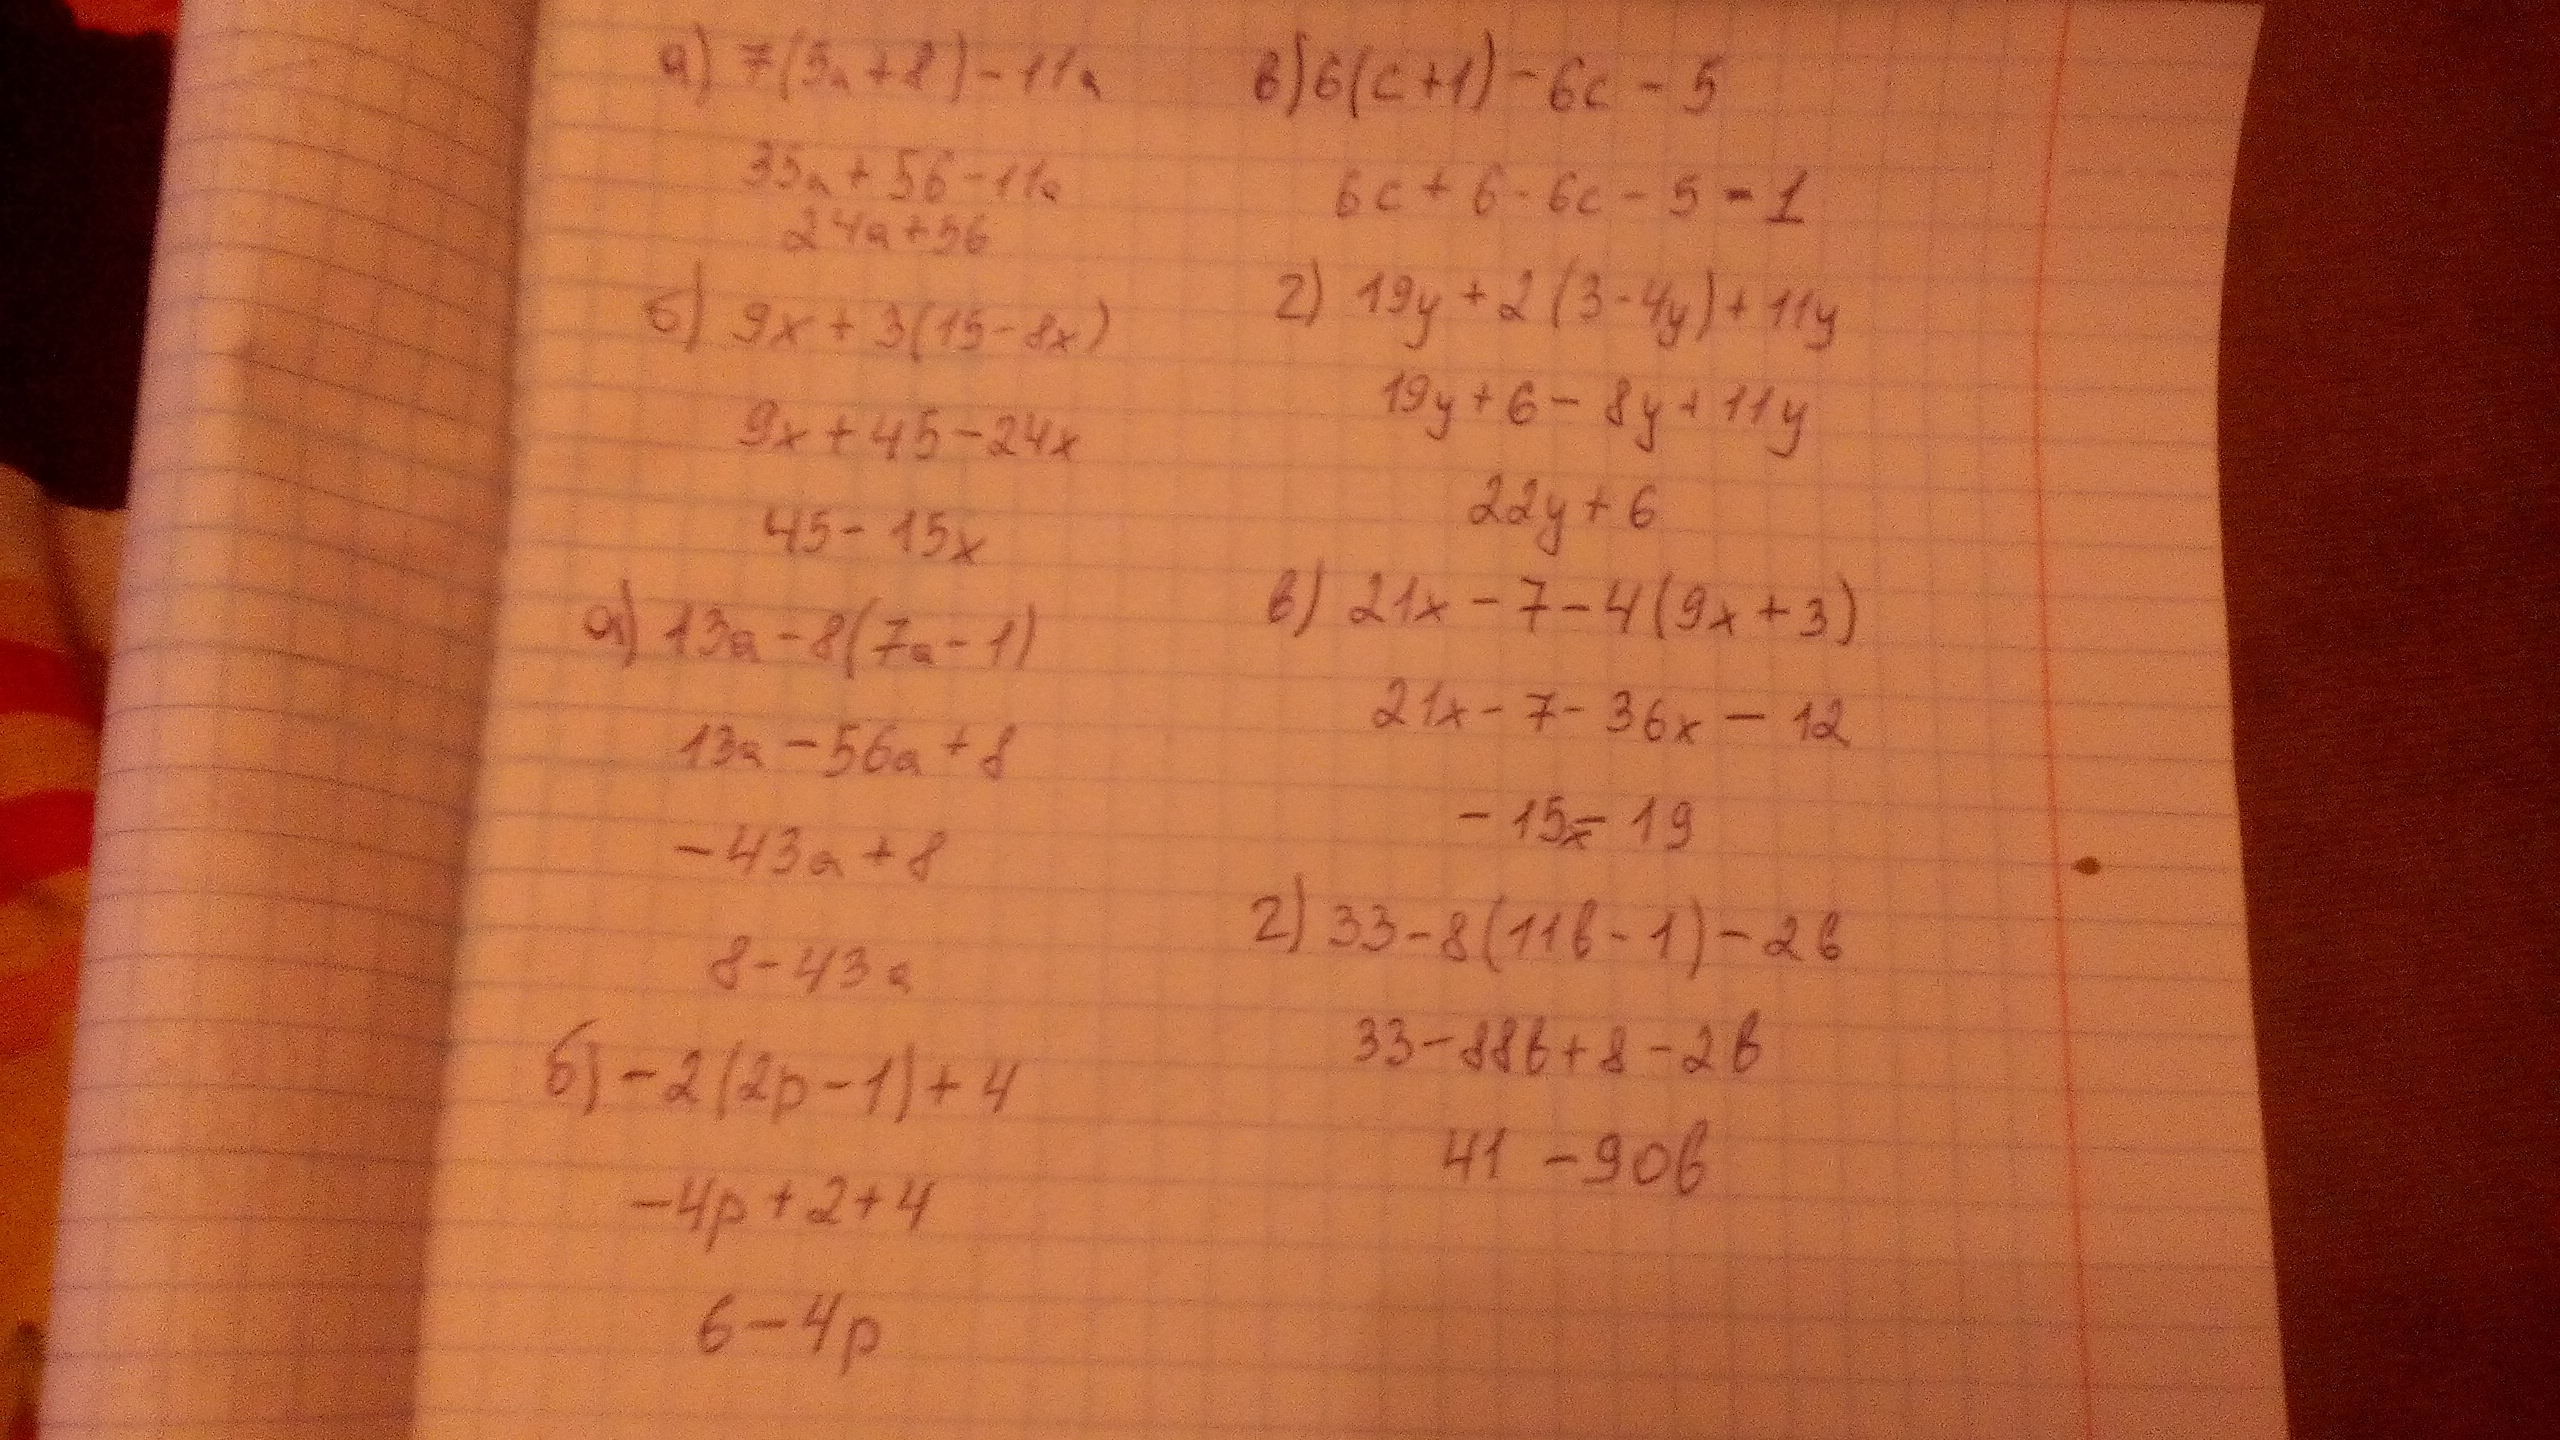 а) 7(5a+8)-11a
35a+56-11a
24a+56
б) 9x+3(15-8x)
9x+45-24x
45-15x
а) 13a-8(7a-1)
13a-56a+8
-43a+8
8-43a
б) -2(2p-1)+4
-4p+2+4
6-4p
в) 6(c+1)-6c-5
6c+6-6c-5=1
г) 19y+2(3-4y)+11y
19y+6-8y+11y
22y+6
в) 21x-7-4(9x+3)
21x-7-36x-12
-15x-19
г) 33-8(11b-1)-2b
33-88b+8-2b
41-90b